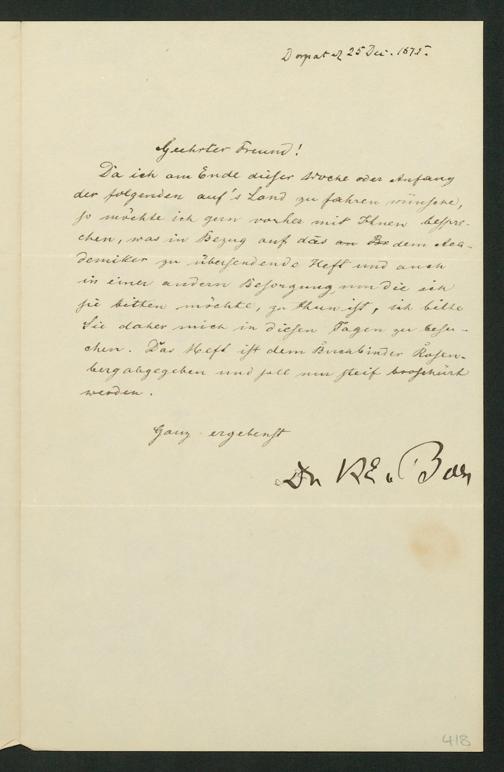 Dorpat d 25 Dec. 1875.
Geehrter Freund!
Da ich am Ende dieser Woche oder Anfang
der folgenden auf's Land zu fahren wünsche,
so möchte ich gern vorher mit Ihnen bespre-
chen, was in Bezug auf das an dem Aca-
demiker zu übersendende Heft und auch
in einer andern Besorgung um die ich
sie bitten möchte, zu thun ist, ich bitte
Sie daher mich in diesen Tagen zu besu-
chen. Das Heft ist dem Buchbinder Rosen-
berg abgegeben und soll nun steif broschürt
werden.
Ganz ergebenst
Dr K E v Baer
418